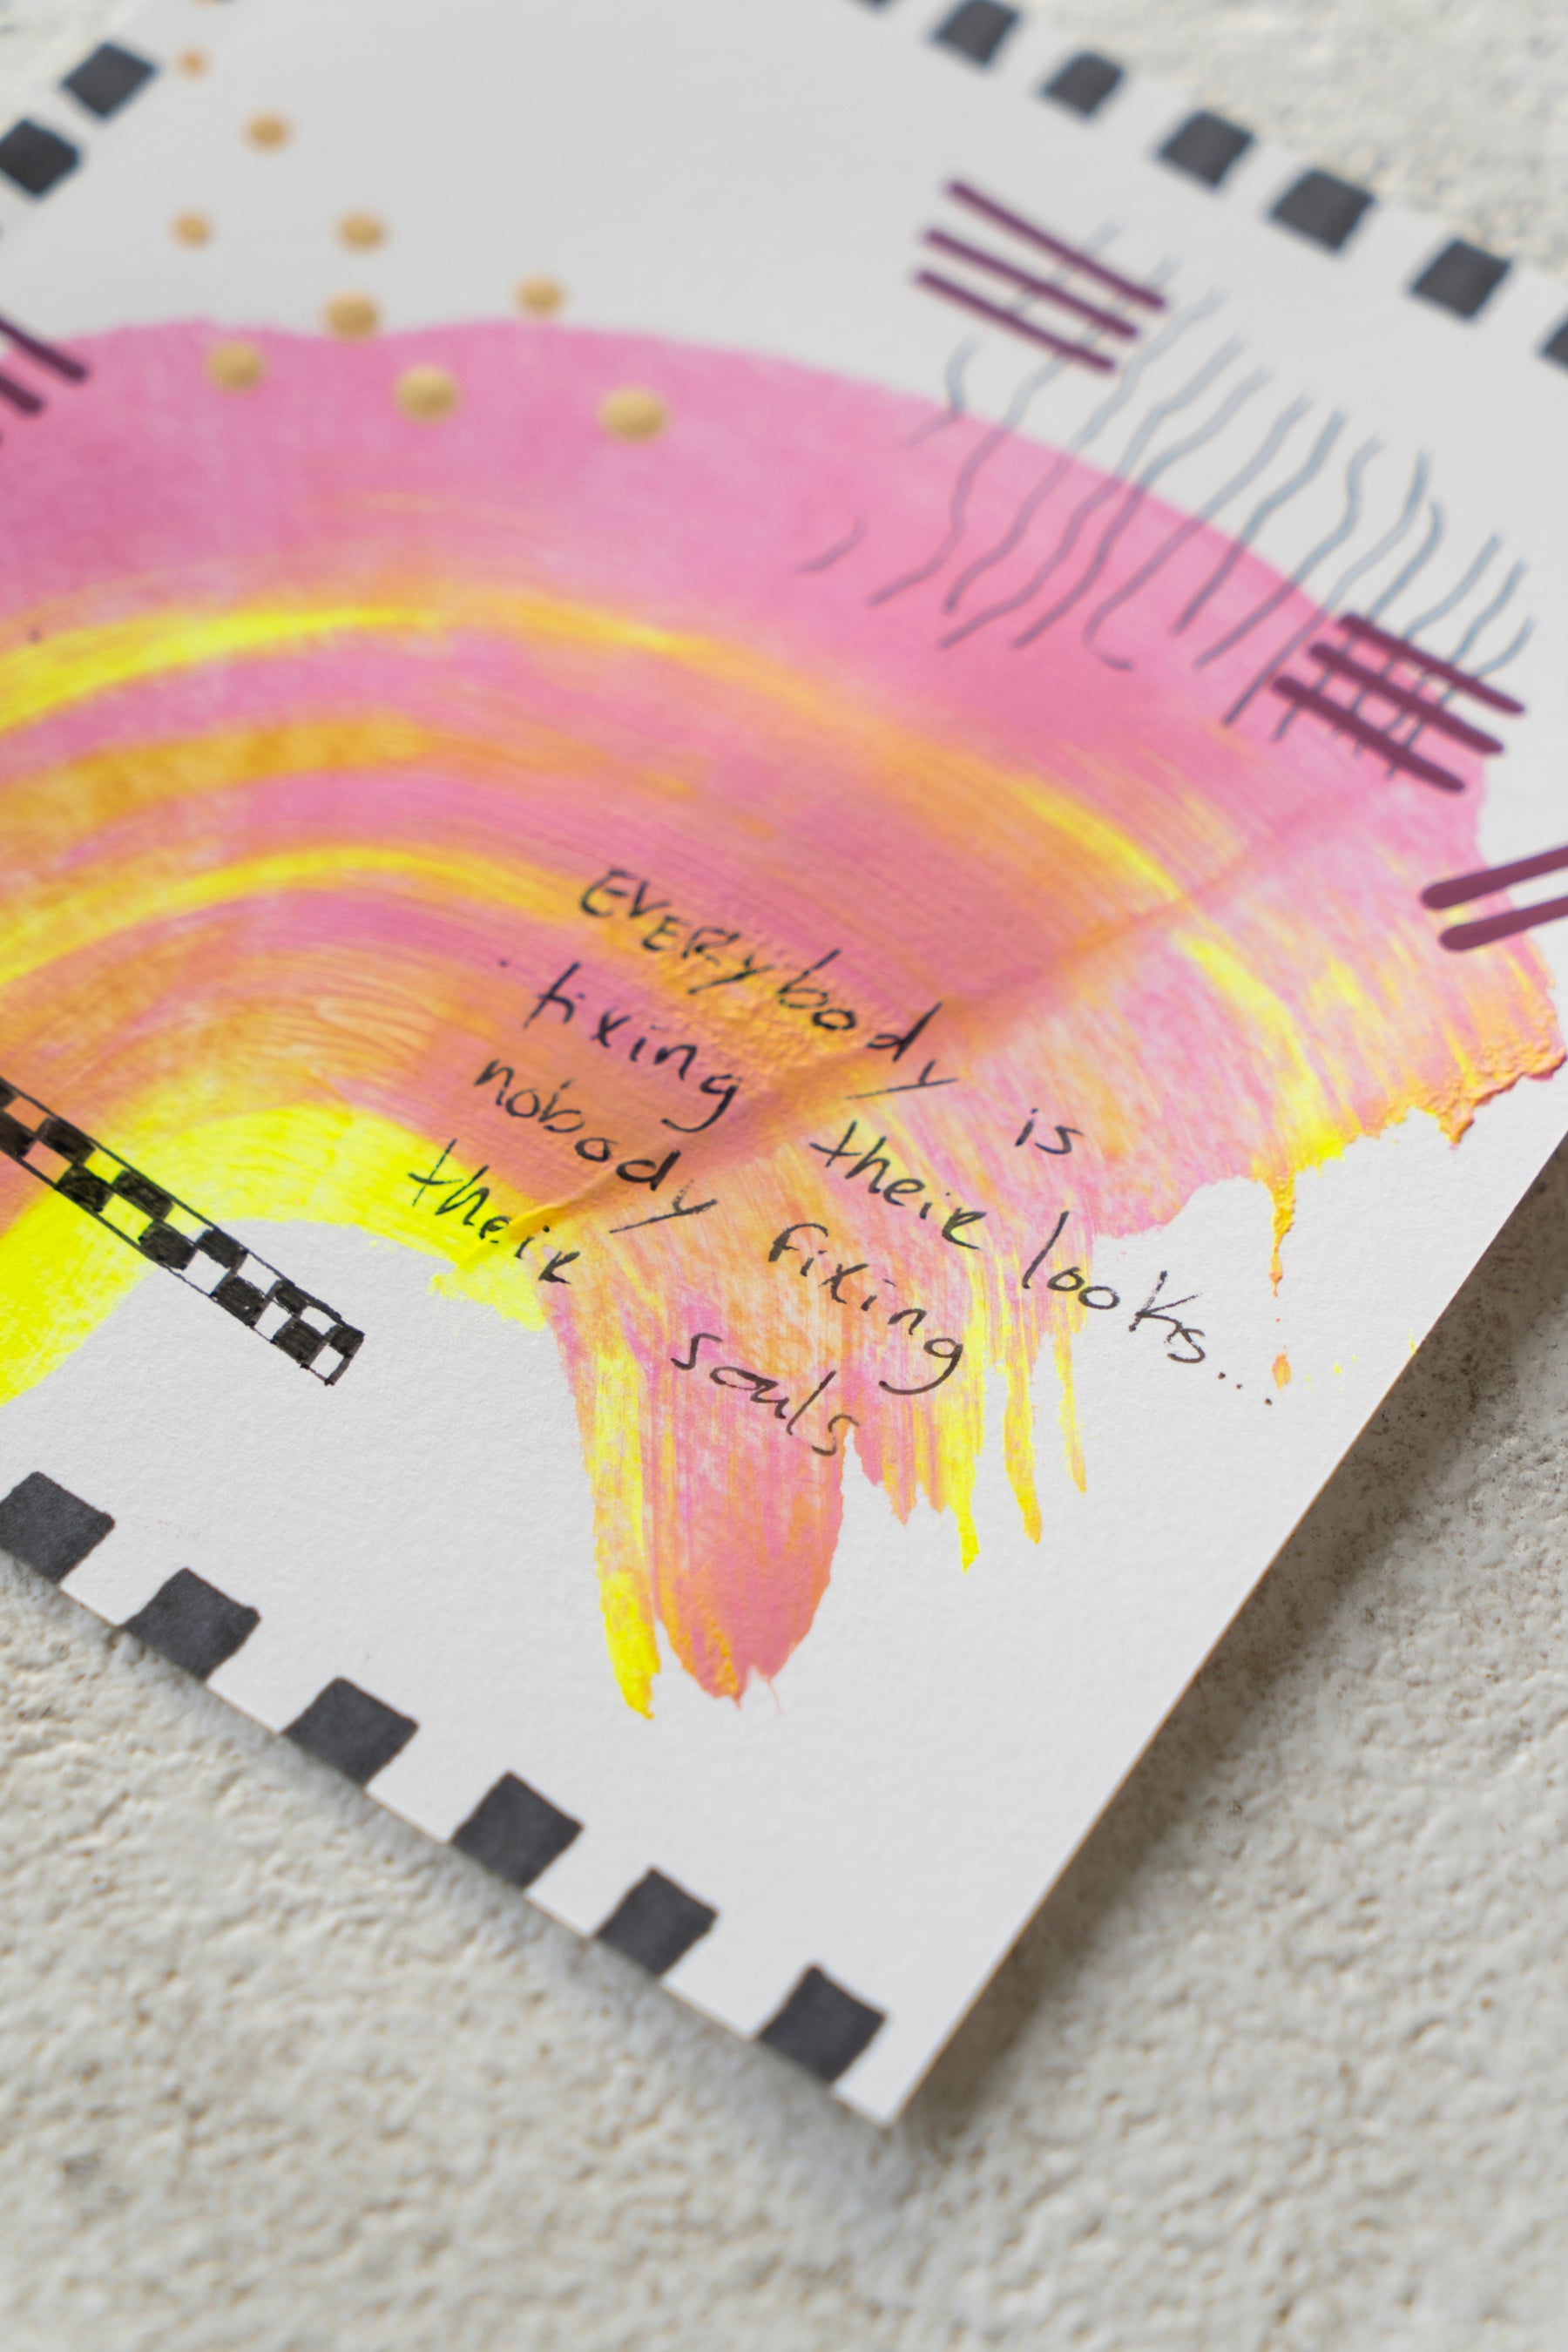 EVERybody is
fixing their looks...
nobody fixing
their souls